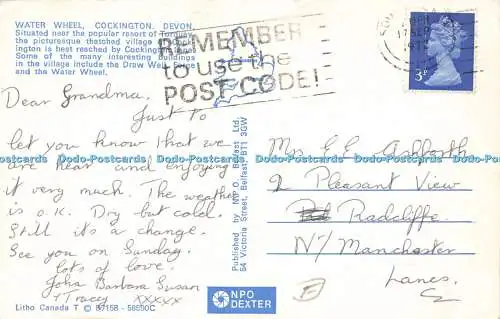 WATER WHEEL, COCKINGTON, DEVON.
Situated near the popular resort of Torquay,
the picturesque thatched village of Cock-
ington is best reached by Cockington lanes.
Some of the many interesting buildings
in the village include the Draw Well, Forge
and the Water Wheel.
REMEMBER
to use the
POST CODE!
17 SEP
3P
Dear Grandma,
Just to
let you know that we
are hear and enjoying
it very much. The weather
is o.K. Dry but cold.
Still it's a change.
See you on Sunday.
lots of love.
John Barbara Susan
Tracey xxxxx
Published by NPO Belfast Ltd.
54 Victoria Street, Belfast BT1 3GW
Mrs E E Ashforth
2 Pleasant View
Radcliffe
Nr Manchester
Lancs.
Litho Canada T © B7158 - 58590C
NPO
DEXTER
Dodo-Postcards Dodo-Postcards Dodo-Postcards Dodo-Postcards Dodo-Postcards